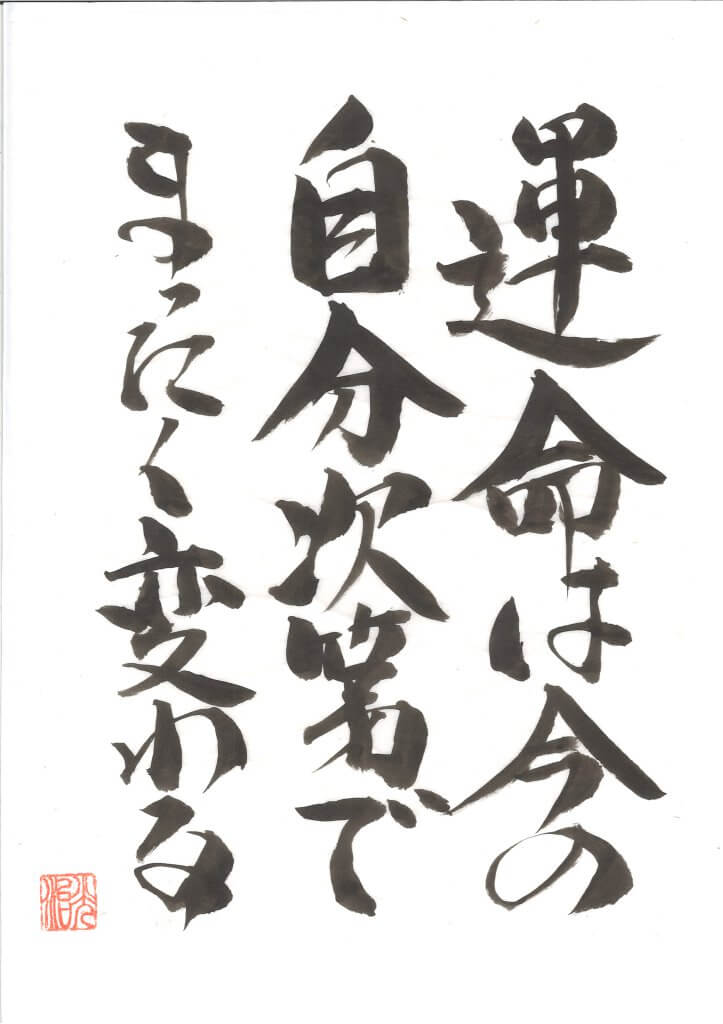 運命は今の
自分次第で
まったく変わる